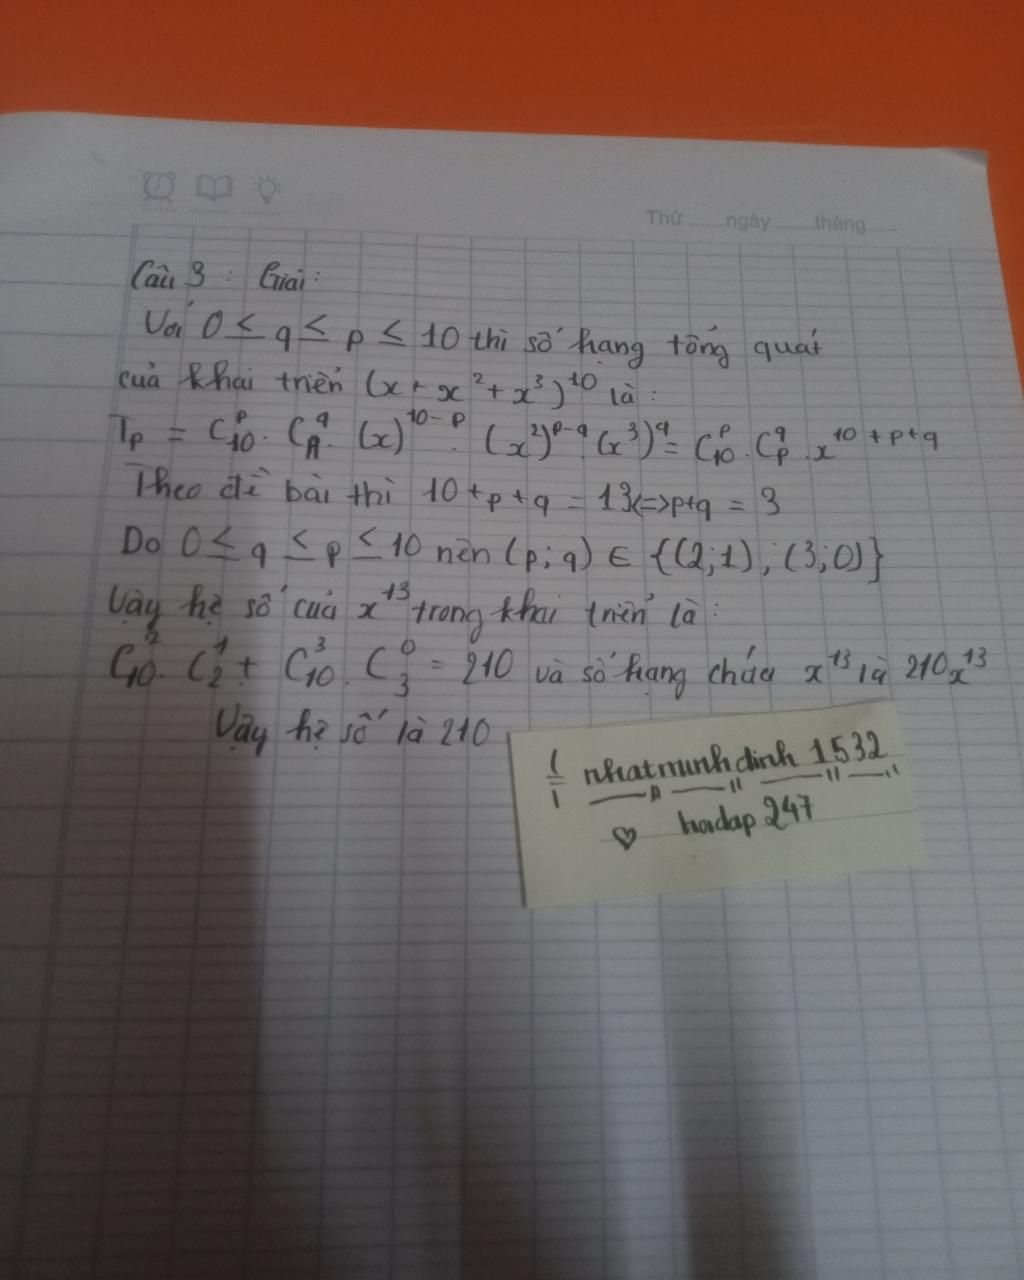 Thứ ........ ngày ........ tháng ........
Câu 3 : Giải :
Với 0 ≤ q ≤ p ≤ 10 thì số hạng tổng quát
của khai triển (x + x² + x³)¹⁰ là :
Tp = C₁₀ᵖ . C_A^q . (x)^(10-p) . (x²)^(p-q) . (x³)^q = C₁₀ᵖ . C_p^q . x^(10+p+q)
Theo đề bài thì 10 + p + q = 13 <=> p+q = 3
Do 0 ≤ q ≤ p ≤ 10 nên (p; q) ∈ {(2;1), (3;0)}
Vậy hệ số của x¹³ trong khai triển là :
C₁₀² . C₂¹ + C₁₀³ . C₃⁰ = 210 và số hạng chứa x¹³ là 210x¹³
Vậy hệ số là 210
nhatminhdinh 1532
♡ hoidap 247